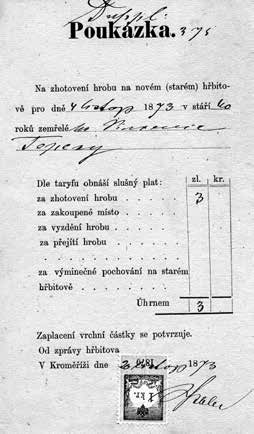 Duppl.
Poukázka. 375
Na zhotovení hrobu na novém (starém) hřbito-
vě pro dně 4 listop 1873 v stáří 60
roků zemřelé
Dle taryfu obnáší slušný plat: zl. kr.
za zhotovení hrobu . . . . . 3
za zakoupené místo . . . . .
za vyzdění hrobu . . . . . .
za přejítí hrobu . . . . . .
. . . . . . . . . . . .
za výminečné pochování na starém
hřbitově . . . . . . . . .
Úhrnem 3
Zaplacení vrchní částky se potvrzuje.
Od zprávy hřbitova
V Kroměříži dne listop 1873
1 kr.